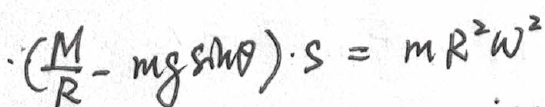 ·(M/R - mg sinθ)·s = mR²ω²